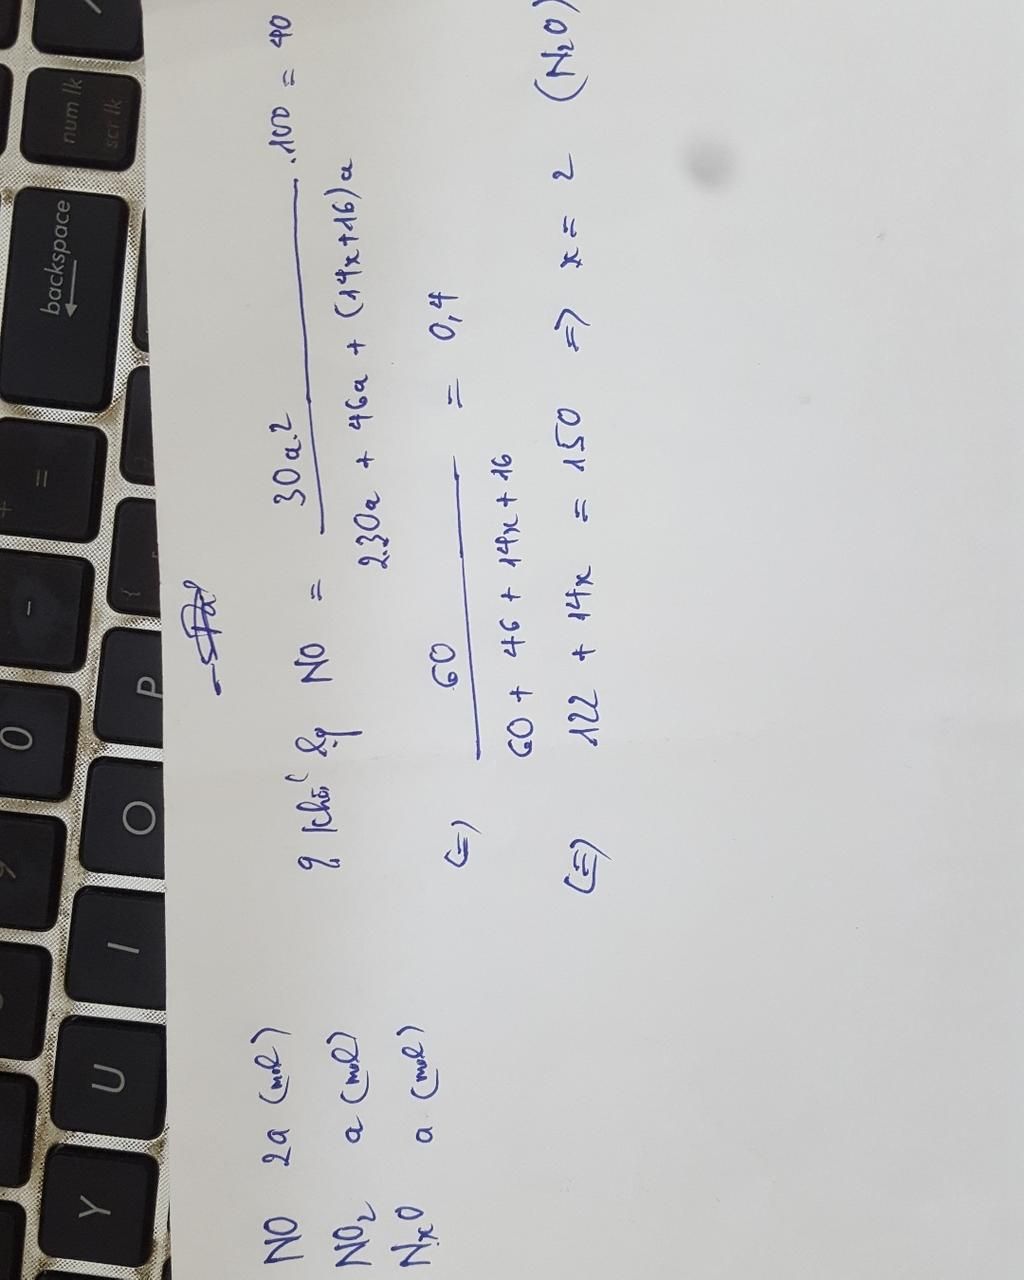 NO 2a (mol)
NO₂ a (mol)
NxO a (mol)
% khối lg NO = 30a.2 / 2.30a + 46a + (14x+16)a .100 = 40
(=) 60 / 60 + 46 + 14x + 16 = 0,4
(=) 122 + 14x = 150 => x = 2 (N₂O)
Y
U
I
O
P
{
0
-
+
=
backspace
num lk
scr lk